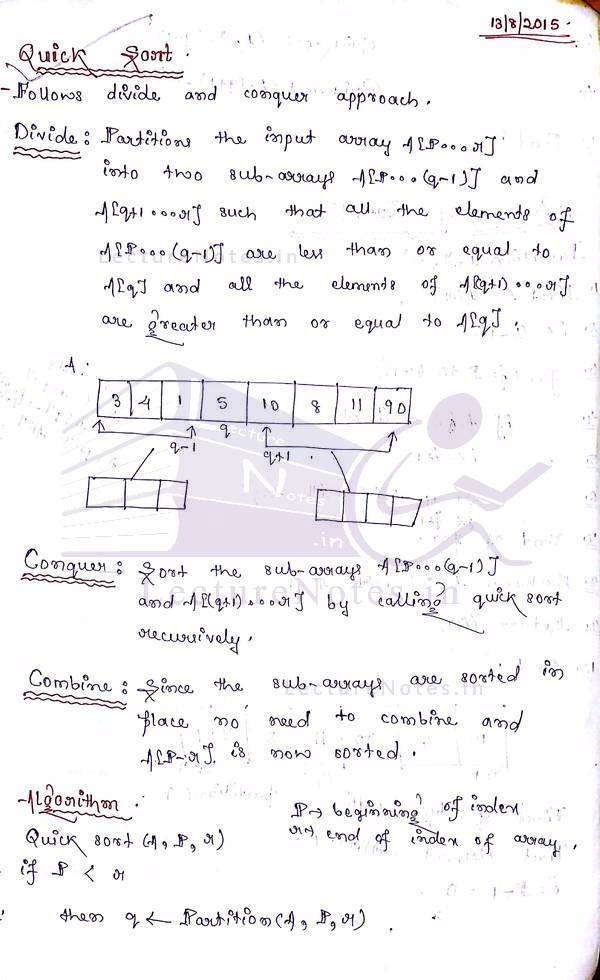 13/8/2015.
Quick Sort.
- Follows divide and conquer approach.
Divide: Partitions the input array A[P...r]
into two sub-arrays A[P...(q-1)] and
A[q+1....r] such that all the elements of
A[P...(q-1)] are less than or equal to
A[q] and all the elements of A[(q+1)...r]
are greater than or equal to A[q].
A:
3 4 1 5 10 8 11 90
q
q-1 q+1
Lecture
Notes
.in
Conquer: Sort the sub-arrays A[P...(q-1)]
and A[(q+1)....r] by calling quick sort
recursively.
LectureNotes.in
Combine: Since the sub-arrays are sorted in
LectureNotes.in
place no need to combine and
A[P-r]. is now sorted.
Algorithm.
P→ beginning of index
Quick sort (A, P, r)
r→ end of index of array.
if P < r
then q ← Partition (A, P, r).